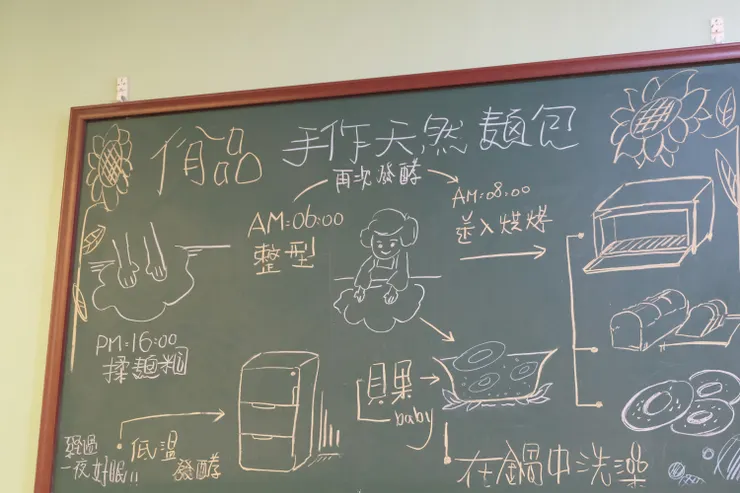 佾品 手作天然麵包
再次發酵
AM:06:00
整型
AM:08:00
並入烘烤
PM:16:00
揉麵糰
經過
一夜好眠!!
低溫
發酵
貝果
baby
在鍋中洗澡